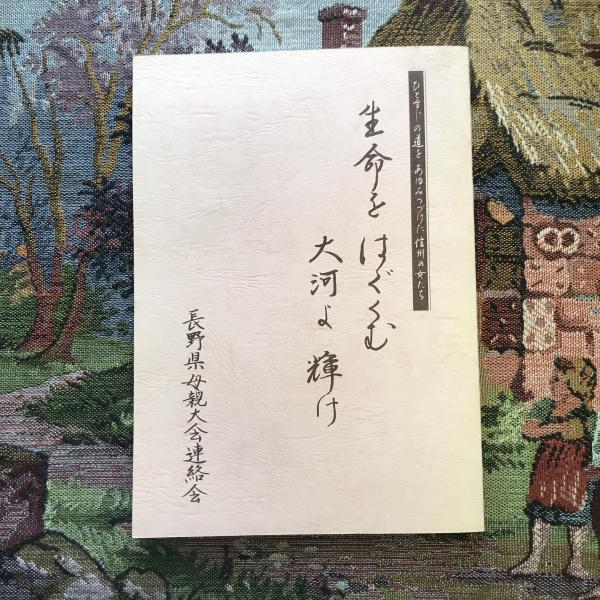 ひとすじの道を あゆみつづけた 信州の女たち
生命を はぐくむ
大河よ 輝け
長野県母親大会連絡会